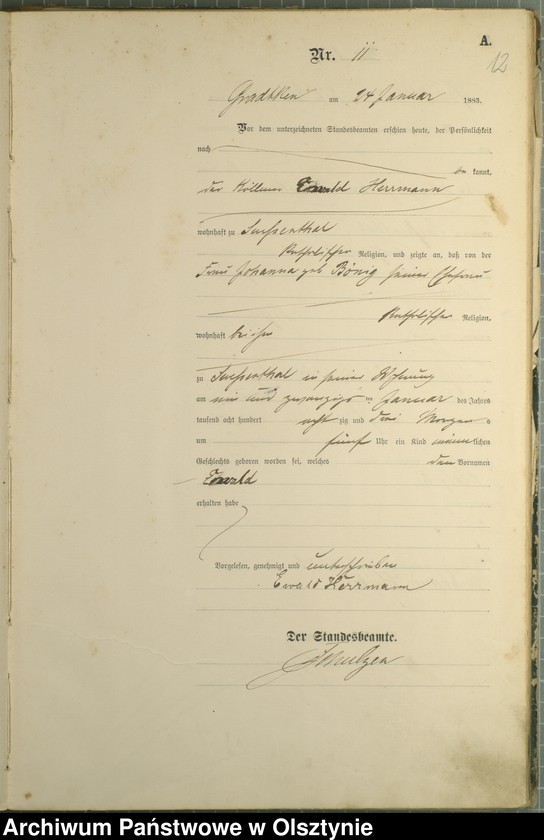 A.
12
Nr. 11
Gradtken am 24 Januar 1883.
Vor dem unterzeichneten Standesbeamten erschien heute, der Persönlichkeit
nach
be kannt,
der Köllmer Ewald Herrmann
wohnhaft zu
katholischer Religion, und zeigte an, daß von der
Frau Johanna geb Bönig seiner Ehefrau
katholischer Religion,
wohnhaft bei ihm
zu in seiner Wohnung
am ein und zwanzigsten Januar des Jahres
tausend acht hundert acht zig und drei Morgens
um fünf Uhr ein Kind männlichen
Geschlechts geboren worden sei, welches den Vornamen
Ewald
erhalten habe
Vorgelesen, genehmigt und unterschrieben
Ewald Herrmann
Der Standesbeamte.
Archiwum Państwowe w Olsztynie